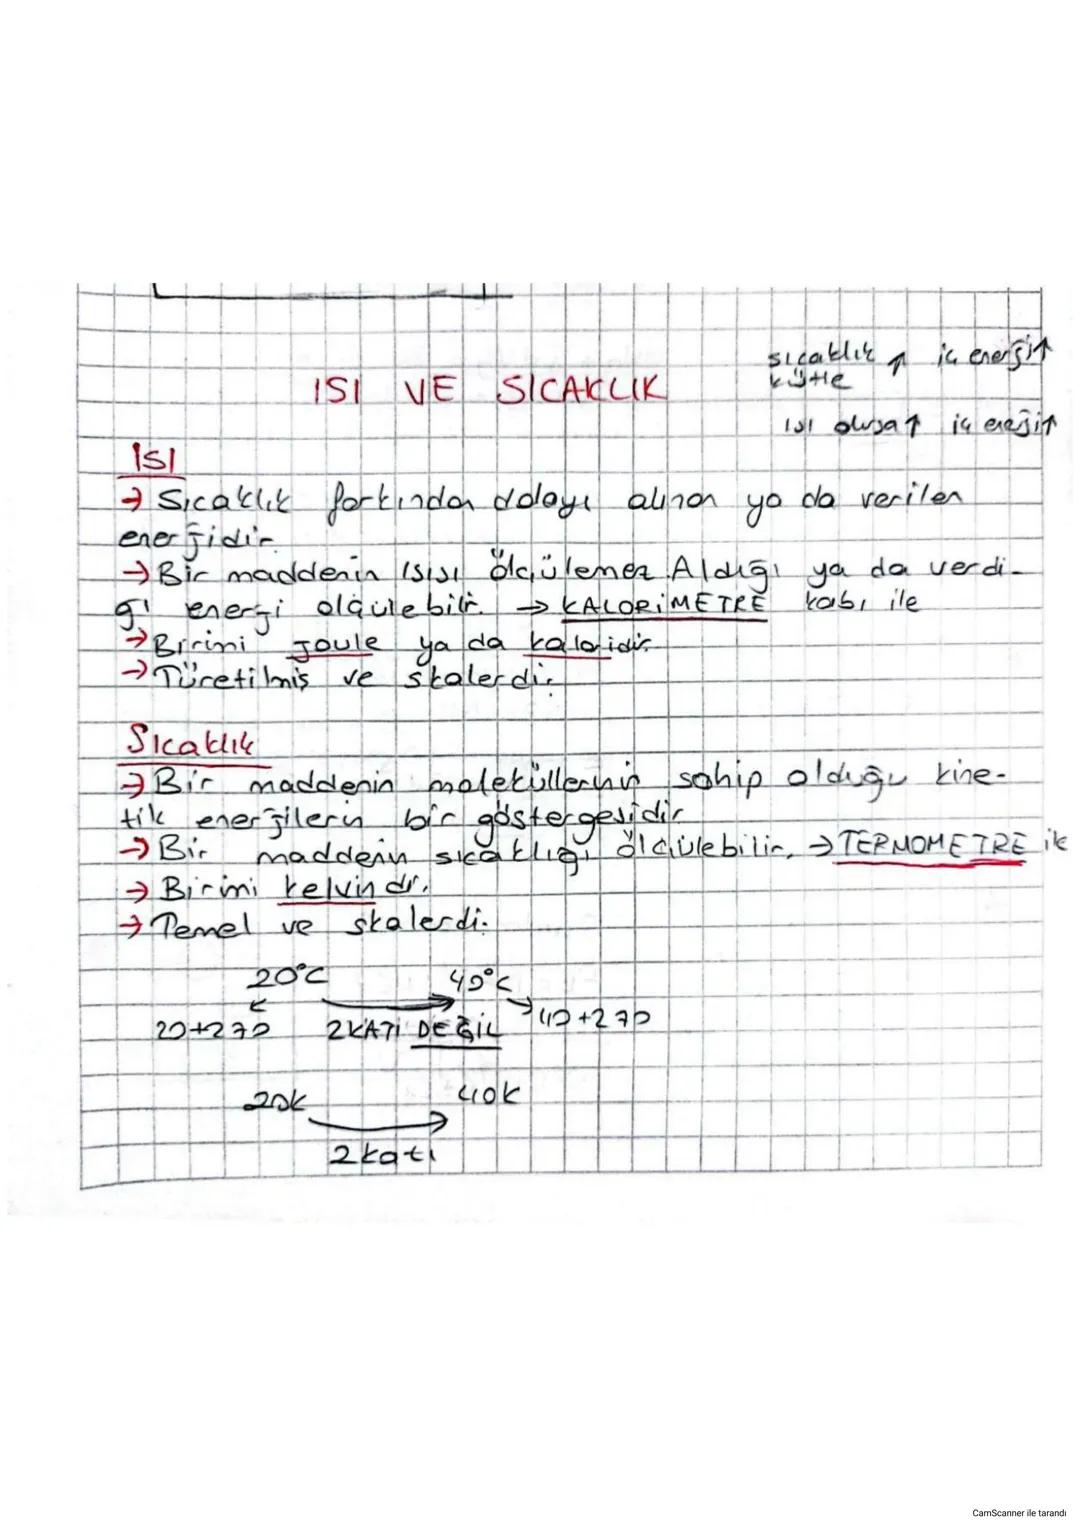 sıcaklık ↑ iç enerji↑
kütle
ISI VE SICAKLIK
ısı alırsa↑ iç enerji↑
ISI
→ Sıcaklık farkından dolayı alınan ya da verilen
enerjidir.
→ Bir maddenin ısısı ölçülemez. Aldığı ya da verdi-
ği enerji ölçülebilir. → KALORİMETRE kabı ile
→ Birimi Joule ya da kaloridir.
→ Türetilmiş ve skalerdir.
Sıcaklık
→ Bir maddenin moleküllerinin sahip olduğu kine-
tik enerjilerin bir göstergesidir
→ Bir maddenin sıcaklığı ölçülebilir. → TERMOMETRE ile
→ Birimi kelvindir.
→ Temel ve skalerdir.
20°C 40°C
20+270 2 KATI DEĞİL 40+270
20K 40K
2 katı
CamScanner ile tarandı